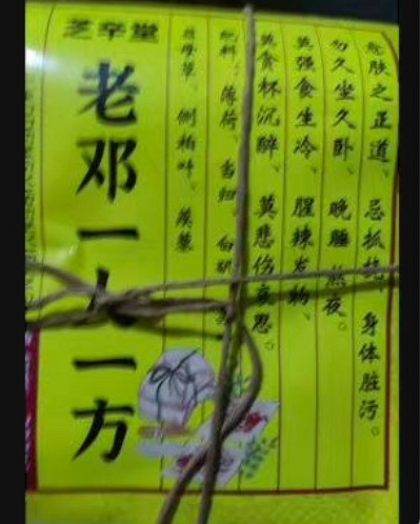 芝辛堂
老邓一人一方
愈肤之正道、忌抓挠、身体脏污。
勿久坐久卧、晚睡熬夜。
莫强食生冷、腥辣发物、
莫贪杯沉醉、莫悲伤忧思。
配料：薄荷、当归、白
侧柏叶、